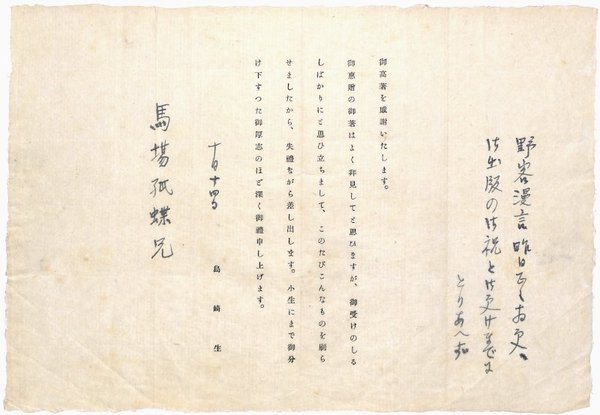 野客漫言昨日
御出版の御祝と
とりあへず
御高著を感謝いたします。
御惠贈の御著はよく拜見してと思ひますが、御受けのしる
しばかりにと思ひ立ちまして、このたびこんなものを刷ら
せましたから、失禮ながら差し出します。小生にまで御分
け下すつた御厚志のほど深く御禮申し上げます。
島崎生
十月十四日
馬場孤蝶兄